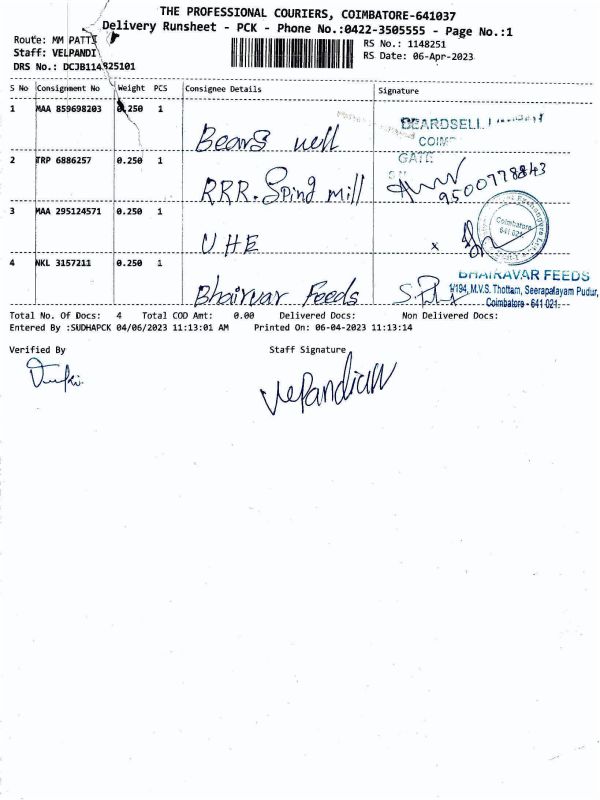 THE PROFESSIONAL COURIERS, COIMBATORE-641037
Delivery Runsheet - PCK - Phone No.:0422-3505555 - Page No.:1
Route: MM PATTI
RS No.: 1148251
Staff: VELPANDI
RS Date: 06-Apr-2023
DRS No.: DCJB114825101
S No Consignment No Weight PCS Consignee Details Signature
1 MAA 859698203 0.250 1
BEARDSELL
Beard well
COIM
2 TRP 6886257 0.250 1
GATE
RRR. Sping mill
9500778843
3 MAA 295124571 0.250 1
Coimbatore
641 021
UHE
x
4 NKL 3157211 0.250 1
BHAIRAVAR FEEDS
Bhairvar Feeds
1/194, M.V.S. Thottam, Seerapalayam Pudur,
Coimbatore - 641 021.
Total No. Of Docs: 4 Total COD Amt: 0.00 Delivered Docs: Non Delivered Docs:
Entered By :SUDHAPCK 04/06/2023 11:13:01 AM Printed On: 06-04-2023 11:13:14
Verified By Staff Signature
Velpandian